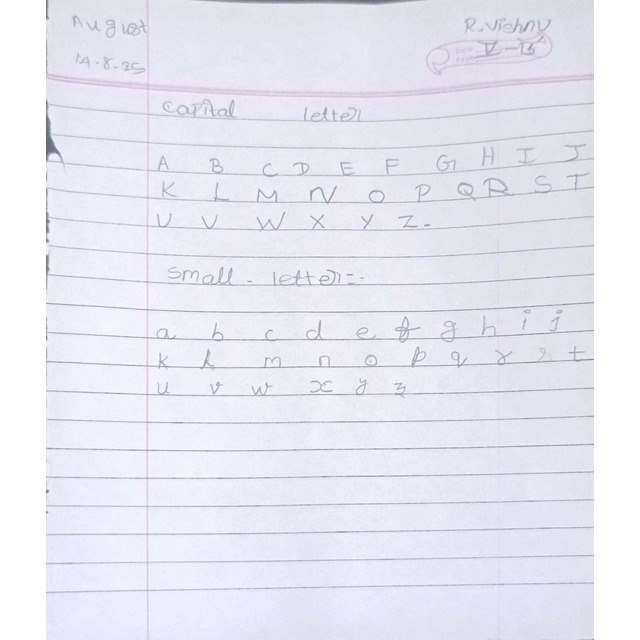 August
R. Vishnu
14.8.25
V-B
Capital letter
A B C D E F G H I J
K L M N O P Q R S T
U V W X Y Z.
Small - letter:-
a b c d e f g h i j
k l m n o p q r s t
u v w x y z